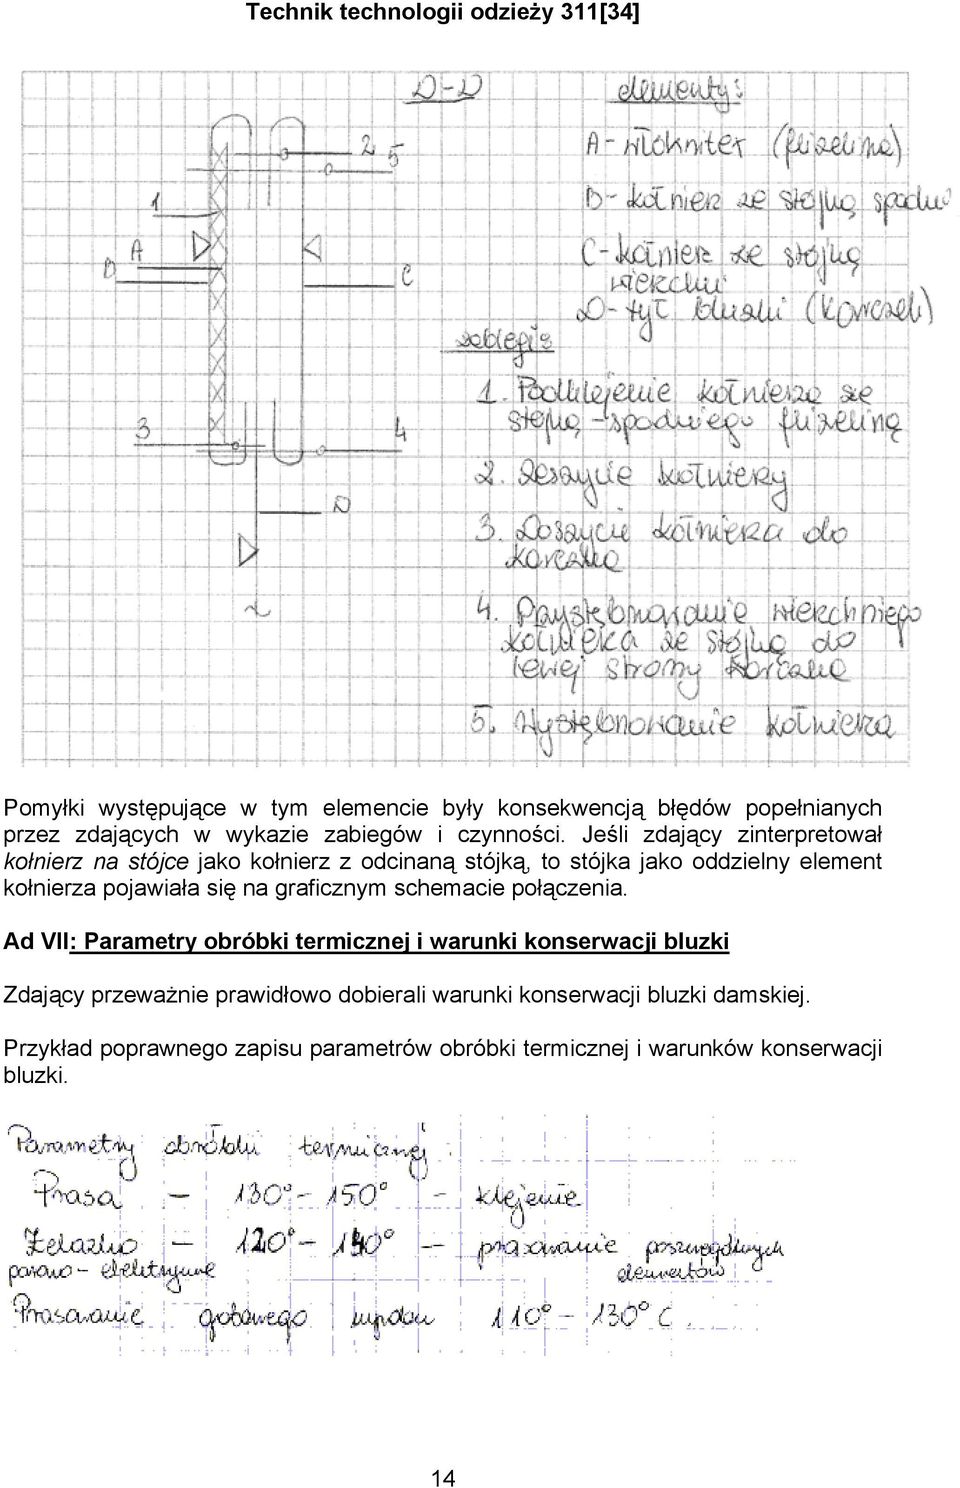 Technik technologii odzieży 311[34]
D-D
elementy:
A - włókniter (flizelina)
B - kołnierz ze stójką spodni
C - kołnierz ze stójką
wierzchni
D - tył bluzki (karczek)
zabiegi:
1. Podklejenie kołnierza ze
stójką - spodniego flizeliną
2. Zeszycie kołnierzy
3. Doszycie kołnierza do
karczka
4. Przystębnowanie wierzchniego
kołnierza ze stójką do
lewej strony karczka
5. Wystębnowanie kołnierza
2
5
1
A
B
C
3
4
D
Pomyłki występujące w tym elemencie były konsekwencją błędów popełnianych
przez zdających w wykazie zabiegów i czynności. Jeśli zdający zinterpretował
kołnierz na stójce jako kołnierz z odcinaną stójką, to stójka jako oddzielny element
kołnierza pojawiała się na graficznym schemacie połączenia.
Ad VII: Parametry obróbki termicznej i warunki konserwacji bluzki
Zdający przeważnie prawidłowo dobierali warunki konserwacji bluzki damskiej.
Przykład poprawnego zapisu parametrów obróbki termicznej i warunków konserwacji
bluzki.
Parametry obróbki termicznej:
Prasa - 130° - 150° - klejenie
Żelazko - 120° - 140° - prasowanie poszczególnych
parowo - elektryczne elementów
Prasowanie gotowego wyrobu 110° - 130° C.
14